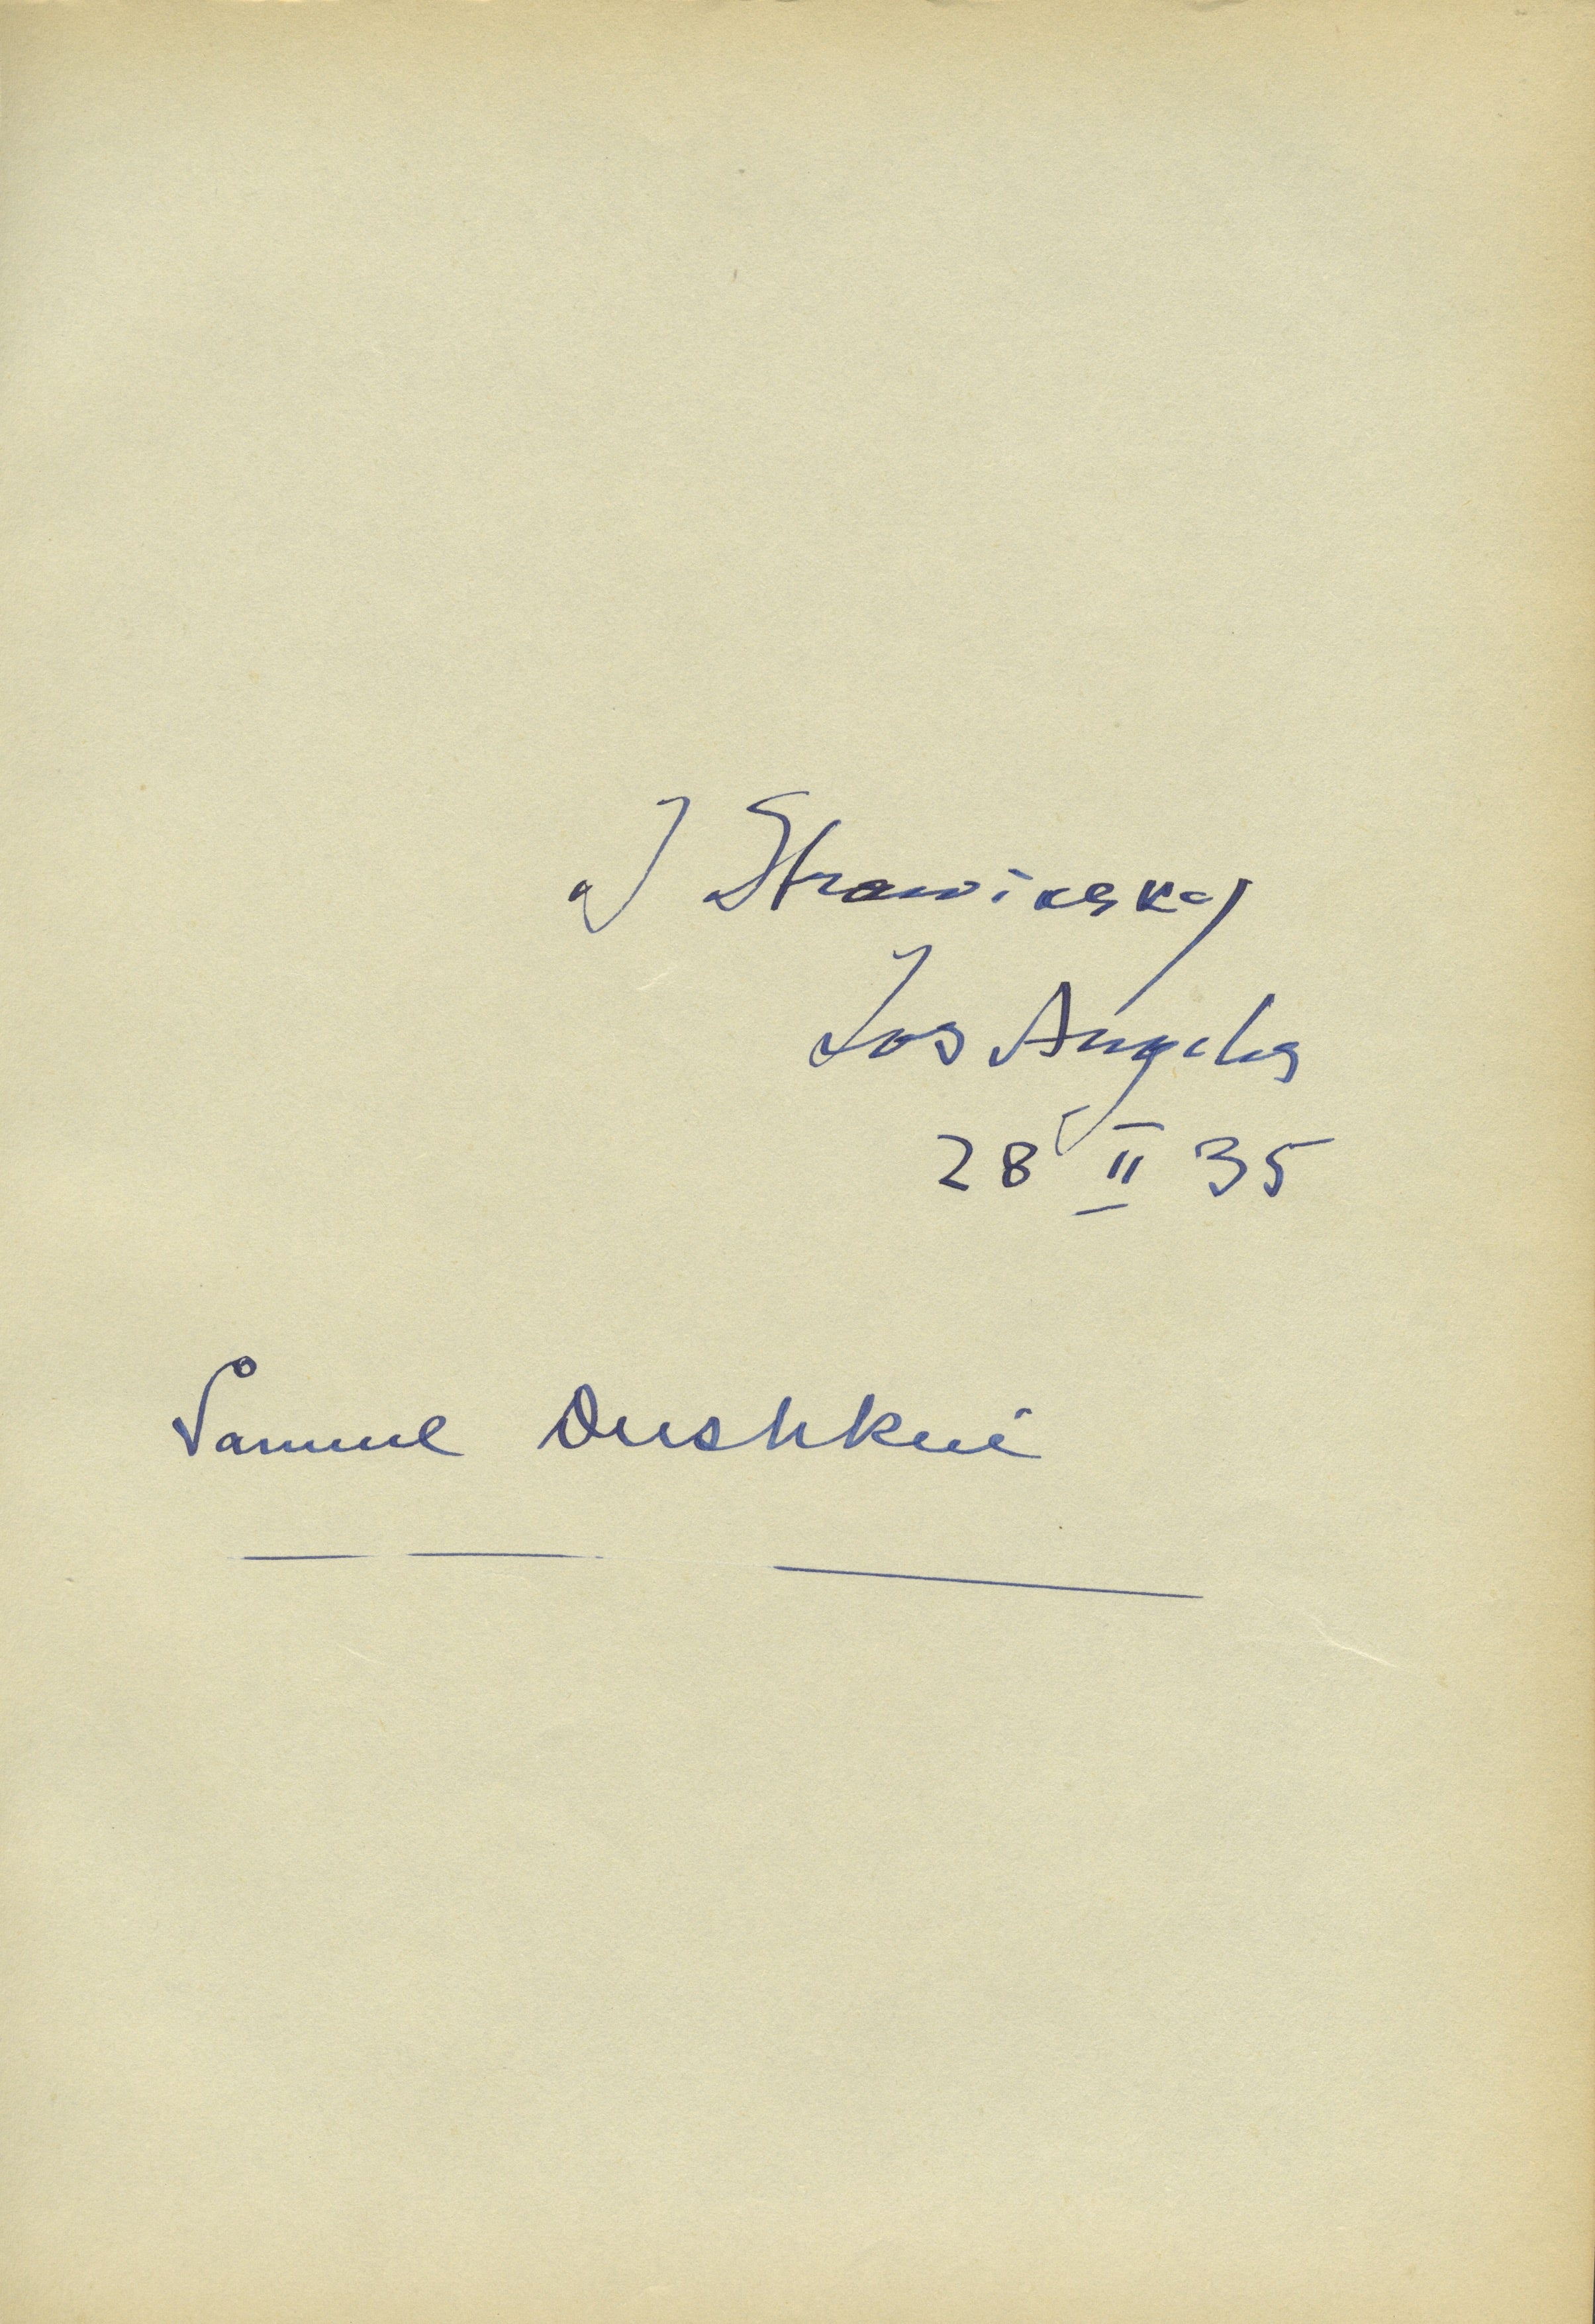 I Strawinsky
Los Angeles
28 II 35
Samuel Dushkin